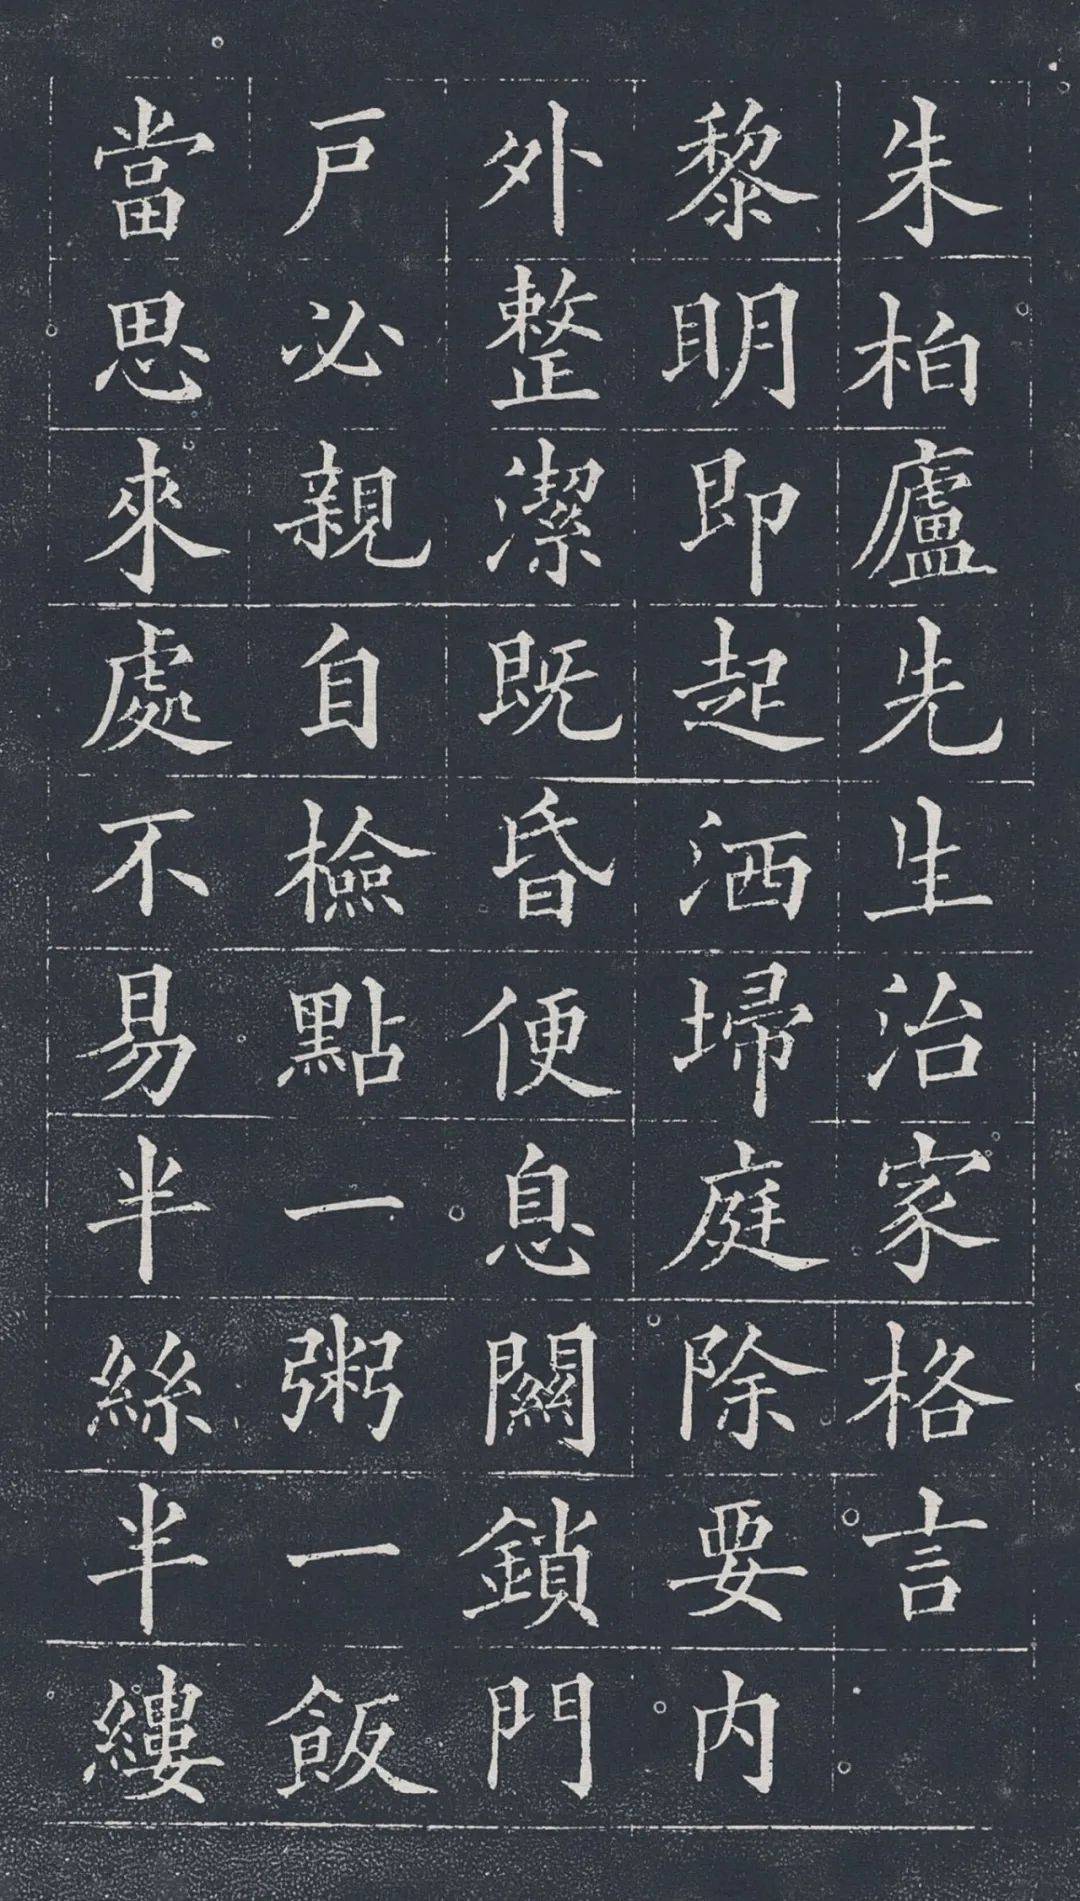 朱柏廬先生治家格言
黎明即起洒埽庭除要内
外整潔既昏便息關鎖門
戶必親自檢點一粥一飯
當思來處不易半絲半縷